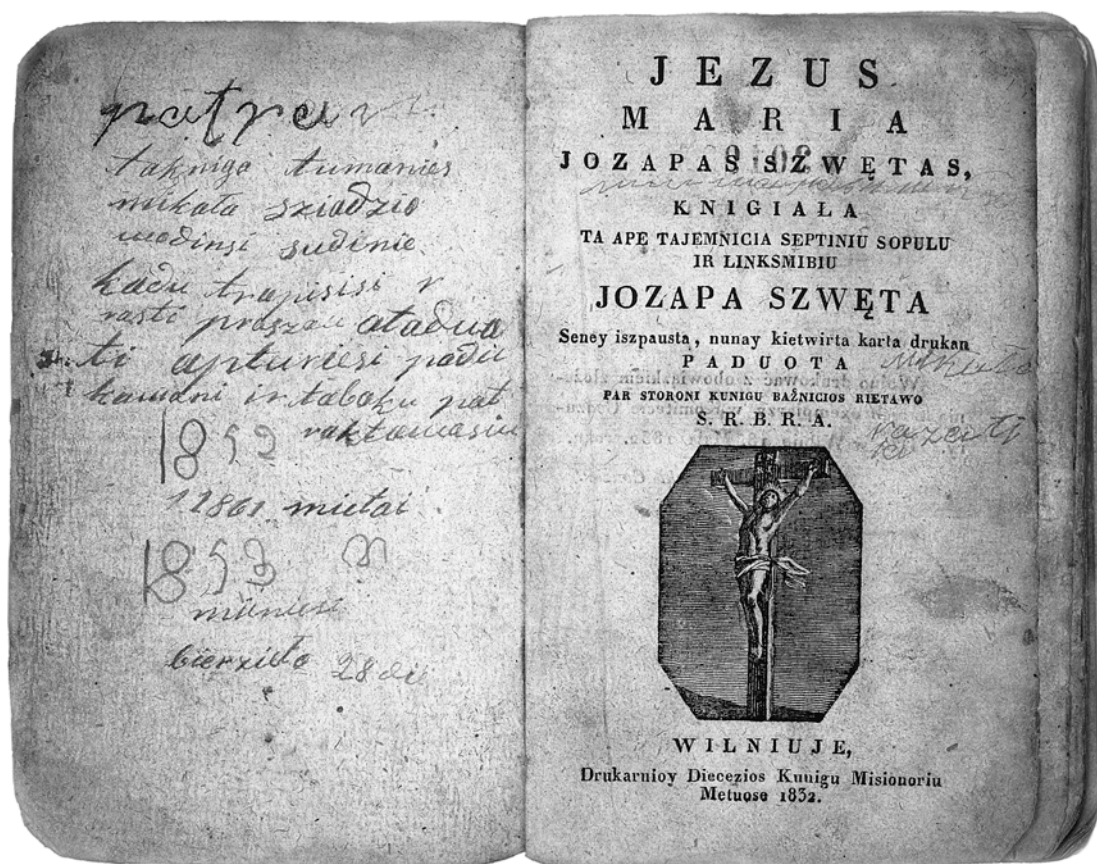 takniga tumanies
mikała sziadzio
wiedinsi sudinie
kadu trapisisi
rasti praszau atadua
ti apturiesi padie
kawani ir tabaku pat
1852
1861 mietai
1853
bierzieło 28
JEZUS
MARIA
JOZAPAS SZWĘTAS,
KNIGIALA
TA APE TAJEMNICIA SEPTINIU SOPULU
IR LINKSMIBIU
JOZAPA SZWĘTA
Seney iszpausta, nunay kietwirta karta drukan
PADUOTA
PAR STORONI KUNIGU BAŹNICIOS RIETAWO
S. R. B. R. A.
WILNIUJE,
Drukarnioy Diecezios Kunigu Misionoriu
Metuose 1832.